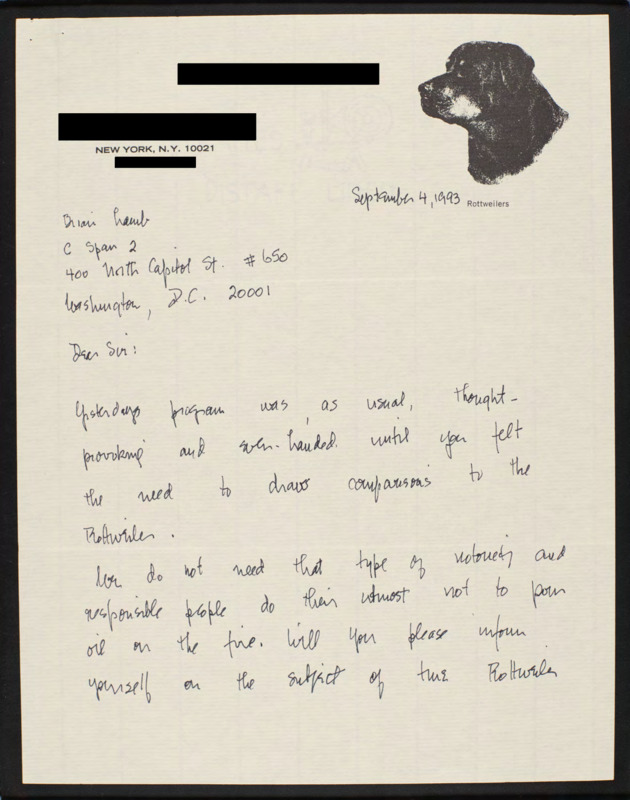 NEW YORK, N.Y. 10021
September 4, 1993
Rottweilers
Brian Lamb
C Span 2
400 North Capitol St. #650
Washington, D.C. 20001
Dear Sir:
Yesterdays program was, as usual, thought-
provoking and even-handed until you felt
the need to draw comparisons to the
Rottweiler.
We do not need that type of notoriety and
responsible people do their utmost not to pour
oil on the fire. Will you please inform
yourself on the subject of the Rottweiler